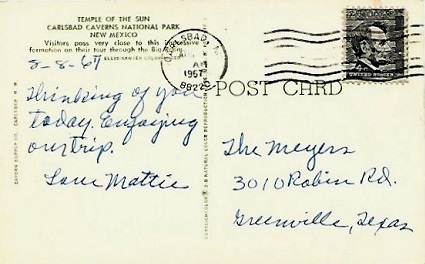 TEMPLE OF THE SUN
CARLSBAD CAVERNS NATIONAL PARK
NEW MEXICO
Visitors pass very close to this impressive
formation on their tour through the Big Room.
8-8-67
Thinking of you
today. Enjoying
our trip.
Love Mattie
CARLSBAD, N.
1967
882
POST CARD
UNITED STATES
The Meyers
3010 Robin Rd.
Greenville, Texas